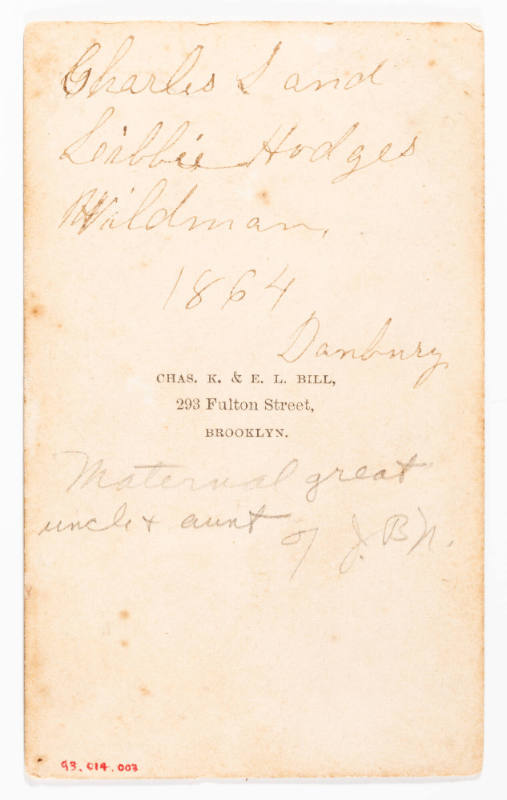 Charles I and
Libbie Hodges
Wildman,
1864
Danbury
CHAS. K. & E. L. BILL,
293 Fulton Street,
BROOKLYN.
Maternal great
uncle + aunt
of J. B. N.
93.014.003